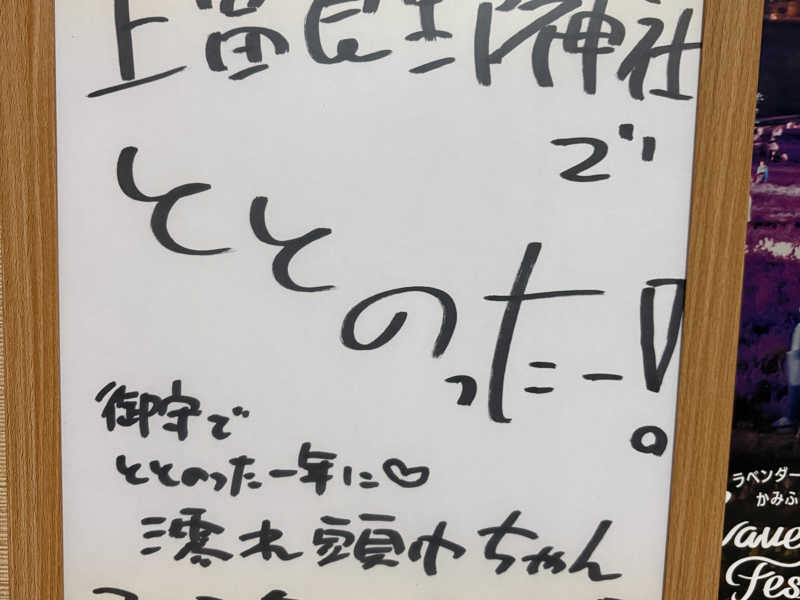 上富良野神社
で
ととのったー!
御守で
ととのった一年に♡
濡れ頭巾ちゃん
ラベンダー
かみふ
Fes